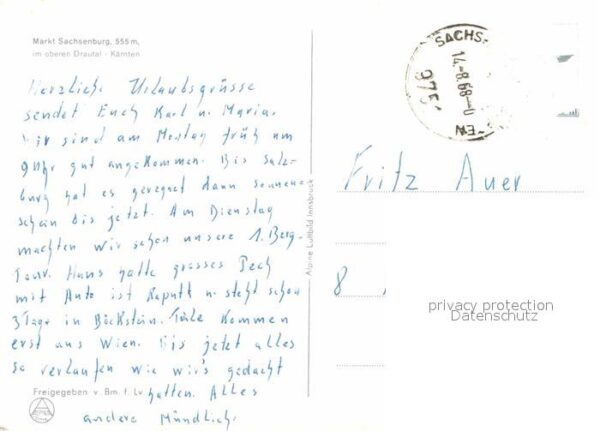 Markt Sachsenburg, 555 m,
im oberen Drautal - Kärnten
Herzliche Urlaubsgrüsse
sendet Euch Karl u. Maria.
Wir sind am Montag früh um
9 Uhr gut angekommen. Bis Salz-
burg hat es geregnet dann Sonnen-
schein bis jetzt. Am Dienstag
machten wir schon unsere 1. Berg-
Tour. Hans hatte grosses Pech
mit Auto ist Kaputt u. steht schon
3 Tage in Böckstein. Teile Kommen
erst aus Wien. Bis jetzt alles
so verlaufen wie wir's gedacht
hatten. Alles
andere Mündlich.
Freigegeben v. Bm. f. Lv
Alpine Luftbild Innsbruck
SACHS
14.-8.68
975
Fritz Auer
8
privacy protection
Datenschutz